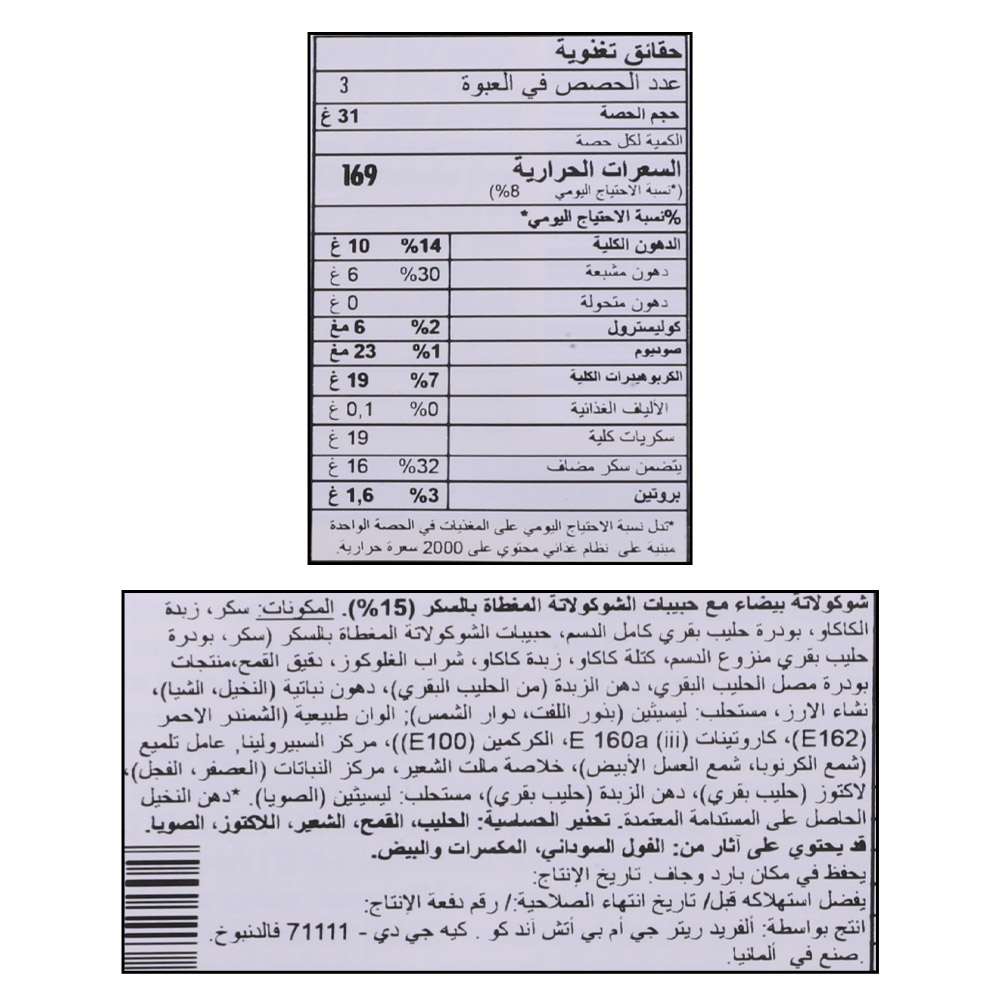 حقائق تغذوية
عدد الحصص في العبوة 3
حجم الحصة 31 غ
الكمية لكل حصة
السعرات الحرارية 169
(*نسبة الاحتياج اليومي 8%)
%نسبة الاحتياج اليومي*
الدهون الكلية %14 10 غ
دهون مشبعة %30 6 غ
دهون متحولة 0 غ
كوليسترول %2 6 مغ
صوديوم %1 23 مغ
الكربوهيدرات الكلية %7 19 غ
الألياف الغذائية %0 0,1 غ
سكريات كلية 19 غ
يتضمن سكر مضاف %32 16 غ
بروتين %3 1,6 غ
*تدل نسبة الاحتياج اليومي على المغذيات في الحصة الواحدة
مبنية على نظام غذائي محتوي على 2000 سعرة حرارية.
شوكولاتة بيضاء مع حبيبات الشوكولاتة المغطاة بالسكر (15%). المكونات: سكر، زبدة
الكاكاو، بودرة حليب بقري كامل الدسم، حبيبات الشوكولاتة المغطاة بالسكر (سكر، بودرة
حليب بقري منزوع الدسم، كتلة كاكاو، زبدة كاكاو، شراب الغلوكوز، دقيق القمح،منتجات
بودرة مصل الحليب البقري، دهن الزبدة (من الحليب البقري)، دهون نباتية (النخيل، الشيا)،
نشاء الارز، مستحلب: ليسيثين (بذور اللفت، دوار الشمس); الوان طبيعية (الشمندر الاحمر
(E162)، كاروتينات E 160a (iii)، الكركمين (E100))، مركز السبيرولينا, عامل تلميع
(شمع الكرنوبا، شمع العسل الأبيض)، خلاصة مالت الشعير، مركز النباتات (العصفر، الفجل)،
لاكتوز (حليب بقري)، دهن الزبدة (حليب بقري)، مستحلب: ليسيثين (الصويا). *دهن النخيل
الحاصل على المستدامة المعتمدة. تحذير الحساسية: الحليب، القمح، الشعير، اللاكتوز، الصويا.
قد يحتوي على آثار من: الفول السوداني، المكسرات والبيض.
يحفظ في مكان بارد وجاف. تاريخ الإنتاج:
يفضل استهلاكه قبل/ تاريخ انتهاء الصلاحية:/ رقم دفعة الإنتاج:
انتج بواسطة: ألفريد ريتر جي أم بي أتش أند كو . كيه جي دي - 71111 فالدنبوخ.
صنع في ألمانيا.